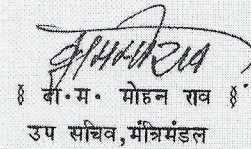 ( बी.म. मोहन राव )
उप सचिव,मंत्रिमंडल